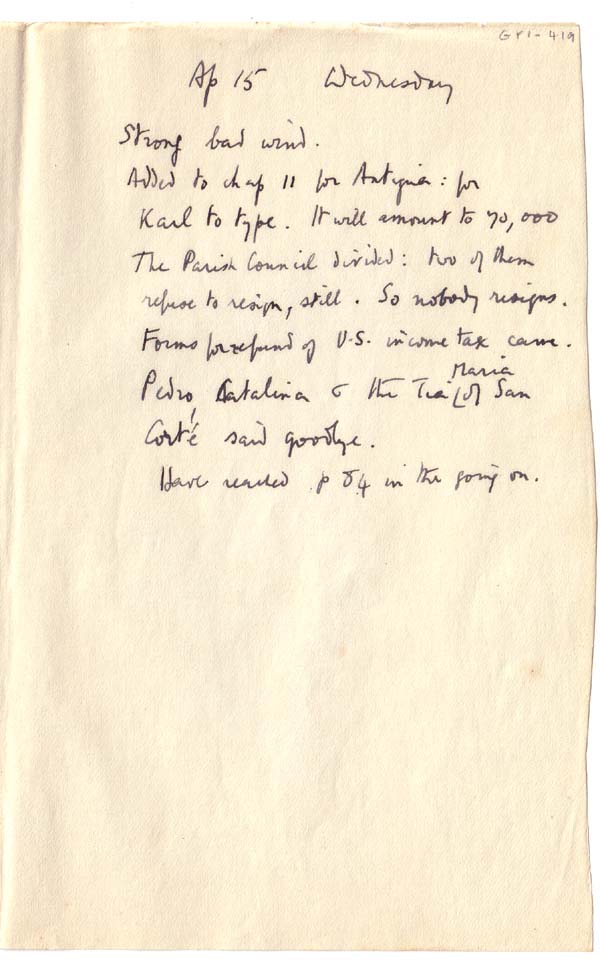 GPI-419
Ap 15 Wednesday
Strong bad wind.
Added to chap 11 for Antigua: for
Karl to type. It will amount to 70,000
The Parish Council divided: two of them
refuse to resign, still. So nobody resigns.
Forms for refund of U.S. income tax came.
Maria
Pedro, Catalina & the Tia of San
Corté said goodbye.
Have reached p 84 in the going on.